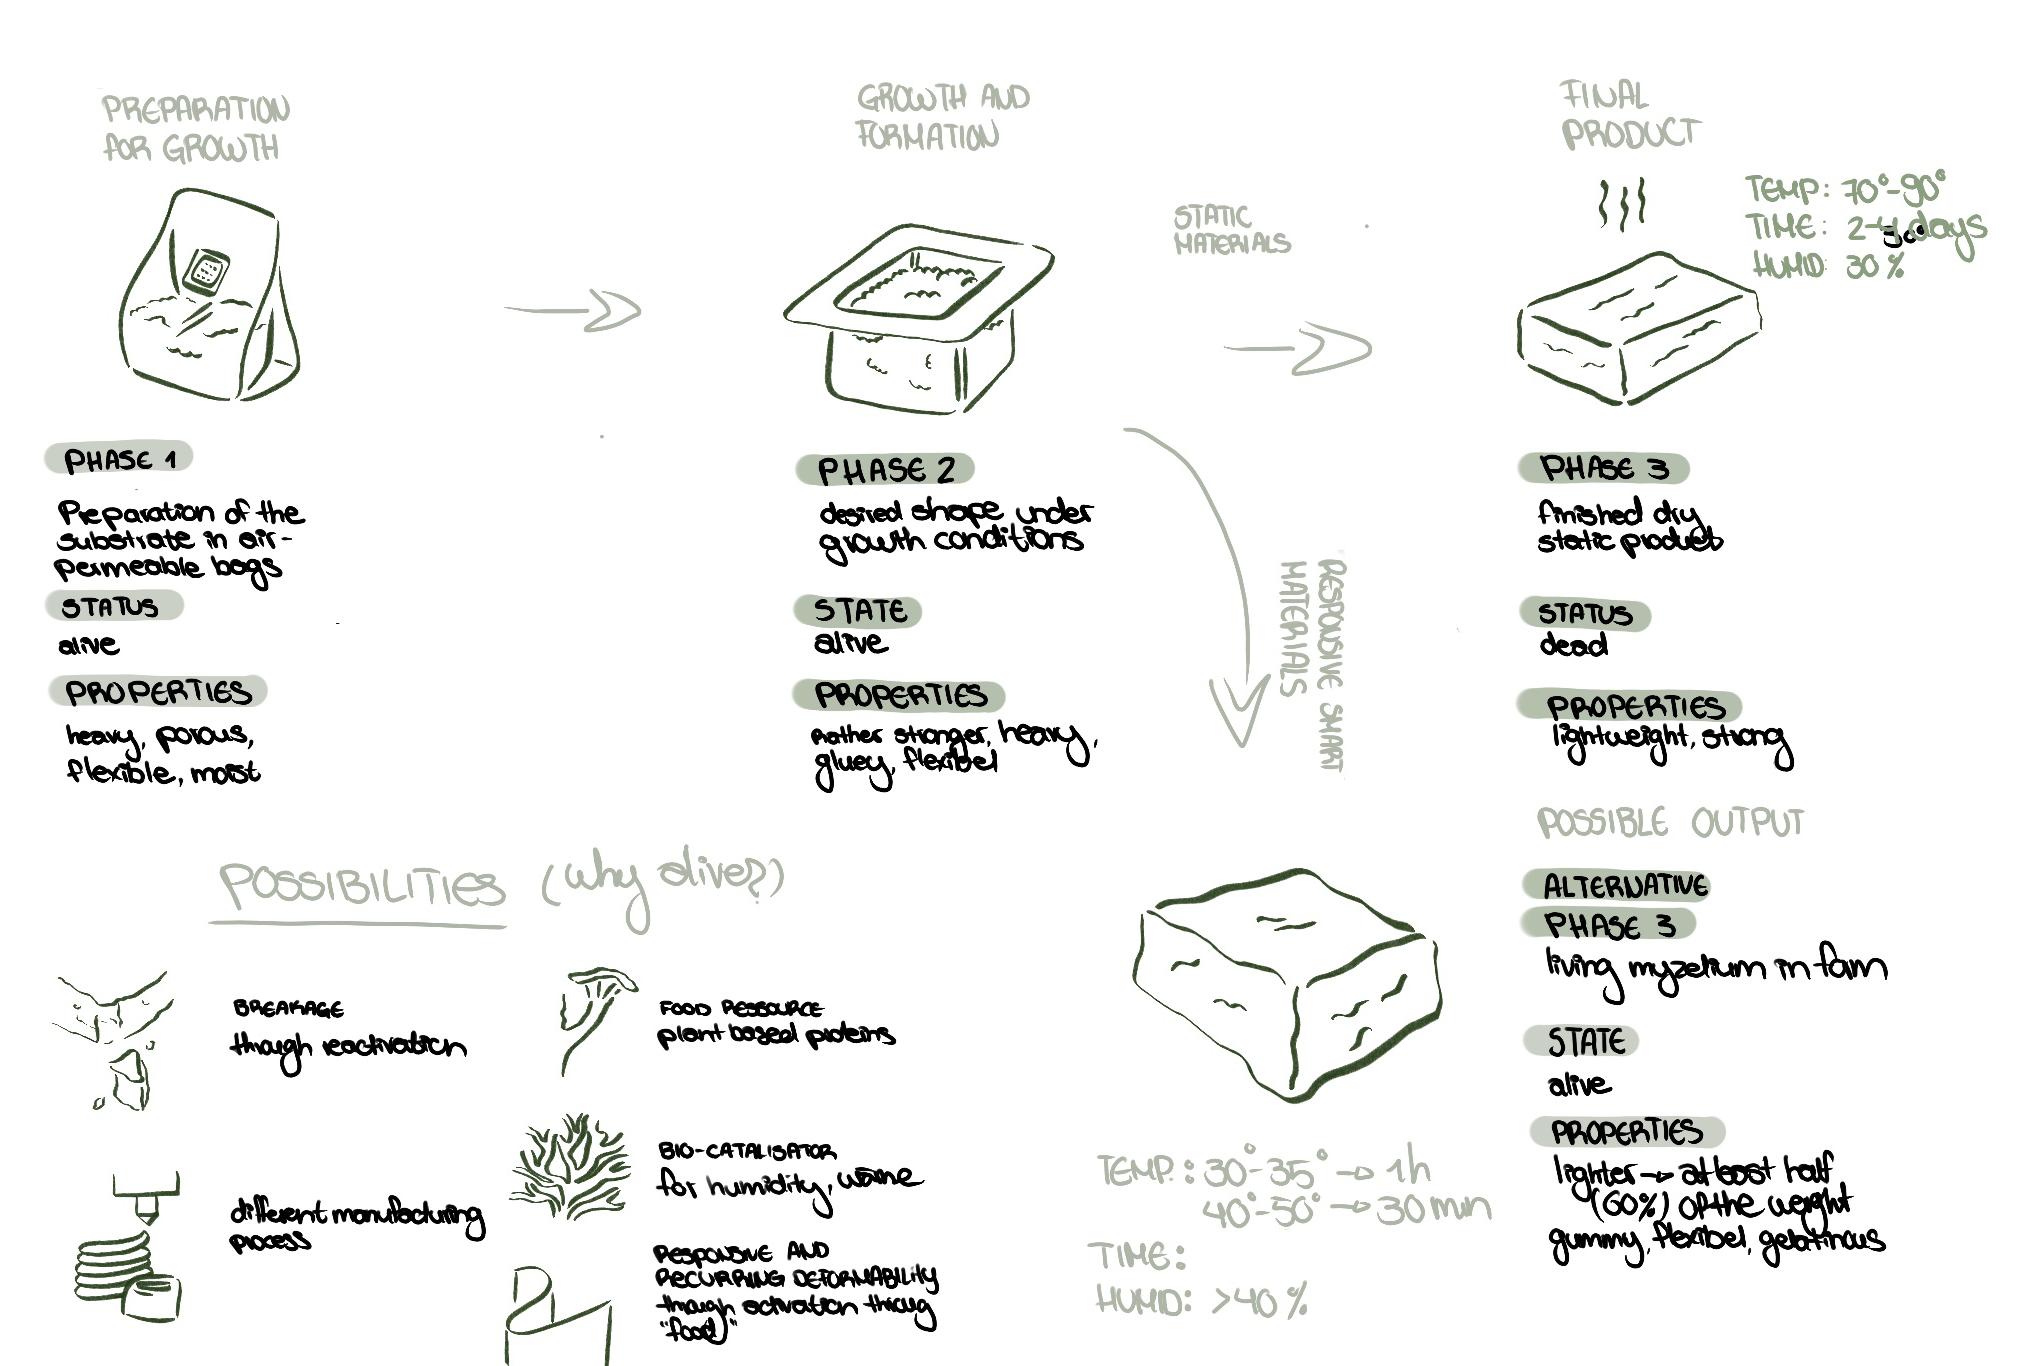 PREPARATION
FOR GROWTH
PHASE 1
Preparation of the
substrate in air-
permeable bags
STATUS
alive
PROPERTIES
heavy, porous,
flexible, moist
GROWTH AND
FORMATION
PHASE 2
desired shape under
growth conditions
STATE
alive
PROPERTIES
rather stronger, heavy,
gluey, flexibel
STATIC
MATERIALS
RESPONSIVE SMART
MATERIALS
FINAL
PRODUCT
TEMP: 70°-90°
TIME: 2-4 days
HUMID: 30%
PHASE 3
finished dry
static product
STATUS
dead
PROPERTIES
lightweight, strong
POSSIBLE OUTPUT
ALTERNATIVE
PHASE 3
living myzelium in fam
STATE
alive
PROPERTIES
lighter → at least half
(60%) of the weight
gummy, flexibel, gelatinous
POSSIBILITIES (why alive?)
BREAKAGE
through reactivation
different manufacturing
process
FOOD RESSOURCE
plant based proteins
BIO-CATALISATOR
for humidity, wärme
RESPONSIVE AND
RECURRING DEFORMABILITY
though activation throug
"food"
TEMP.: 30°-35° → 1h
40°-50° → 30 min
TIME:
HUMID: >40%